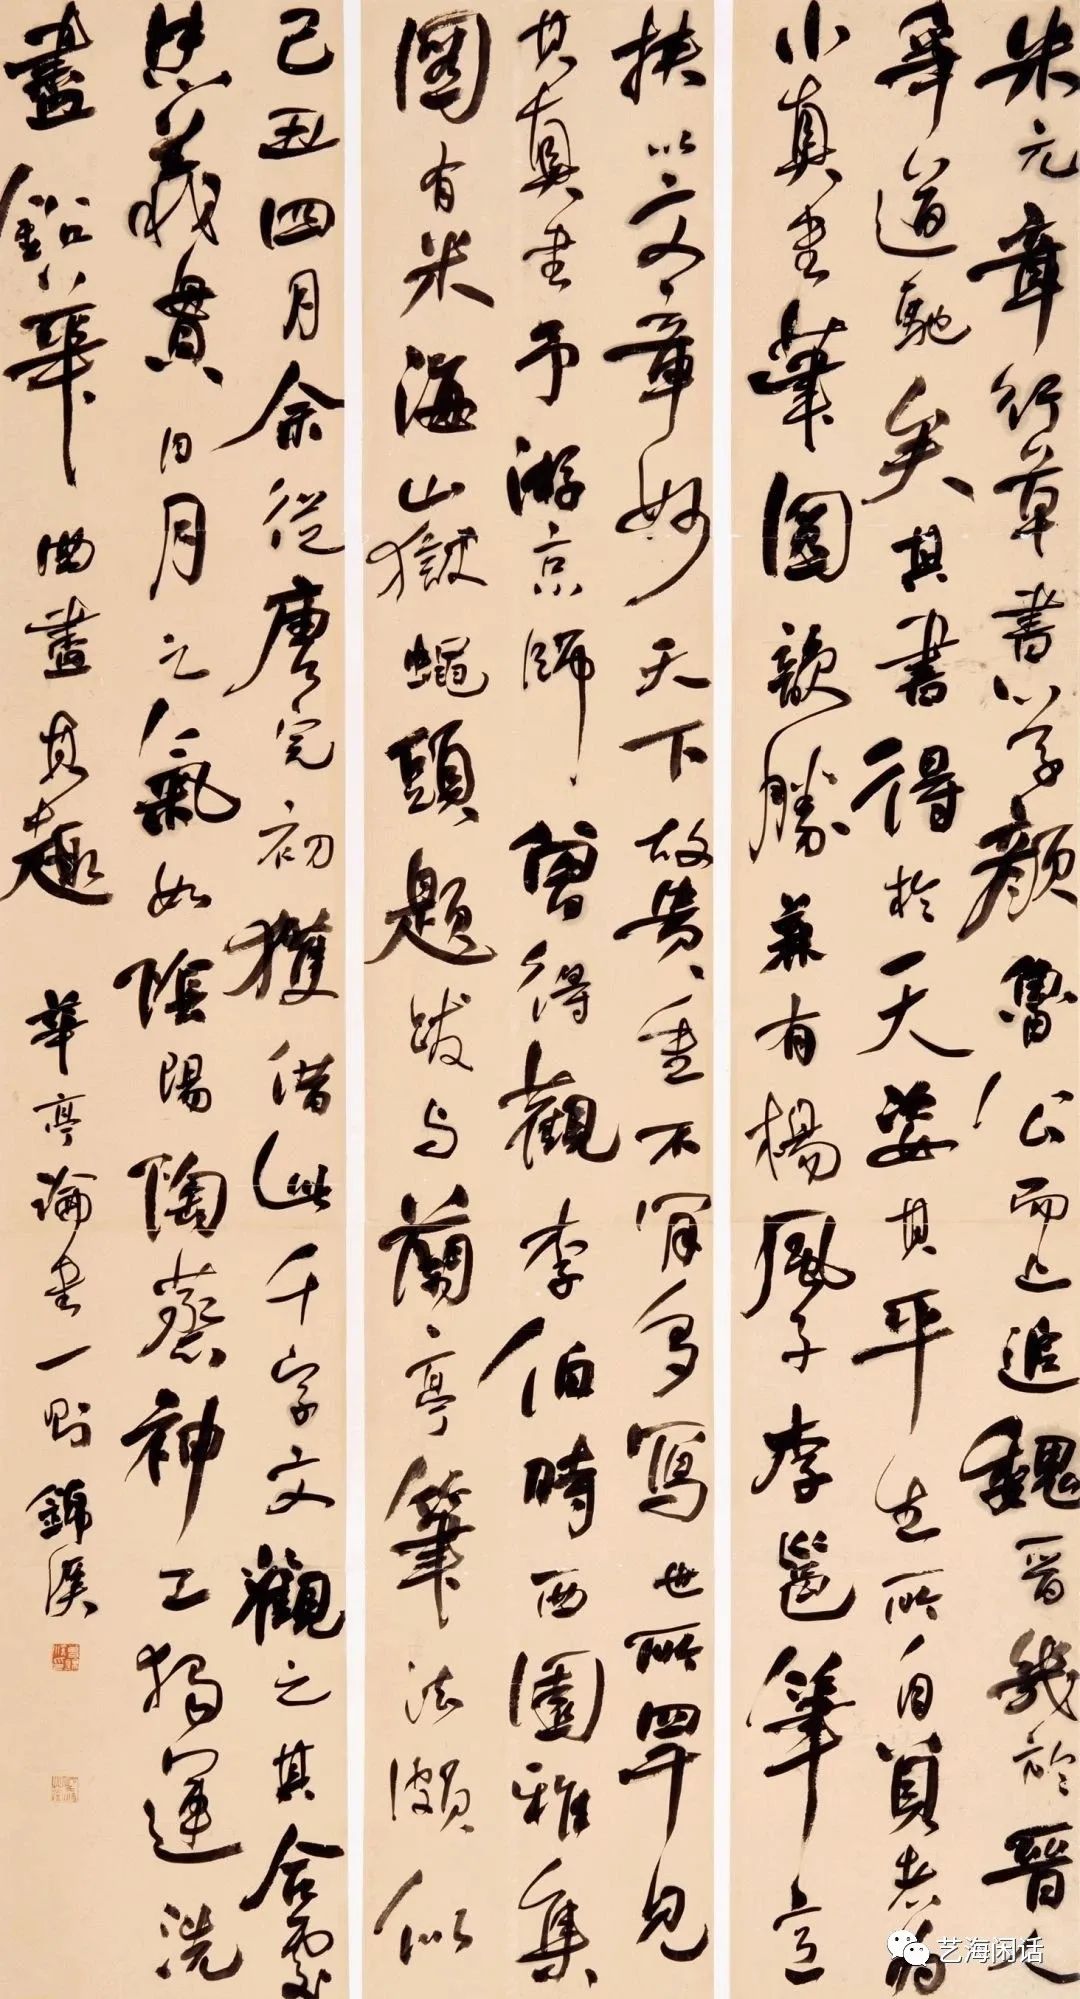 米元章行草書學顏魯公而上追魏晋幾於晉人
并道馳矣其書得於天姿其平生所自負者為
小真書筆圓韻勝兼有楊風子李邕筆意
挾以文章妙天下故貴重不肯多寫世所罕見
其真書予游京師曾得觀李伯時西園雅集
圖有米海山嶽蠅頭題跋与蘭亭筆法頗似
己丑四月余從唐完初獲借此千字文觀之其合處
義貫日月之氣如陰陽陶蒸神工獨運洗
盡鉛華曲盡其趣 華亭論書一則 錦溪
艺海闲话